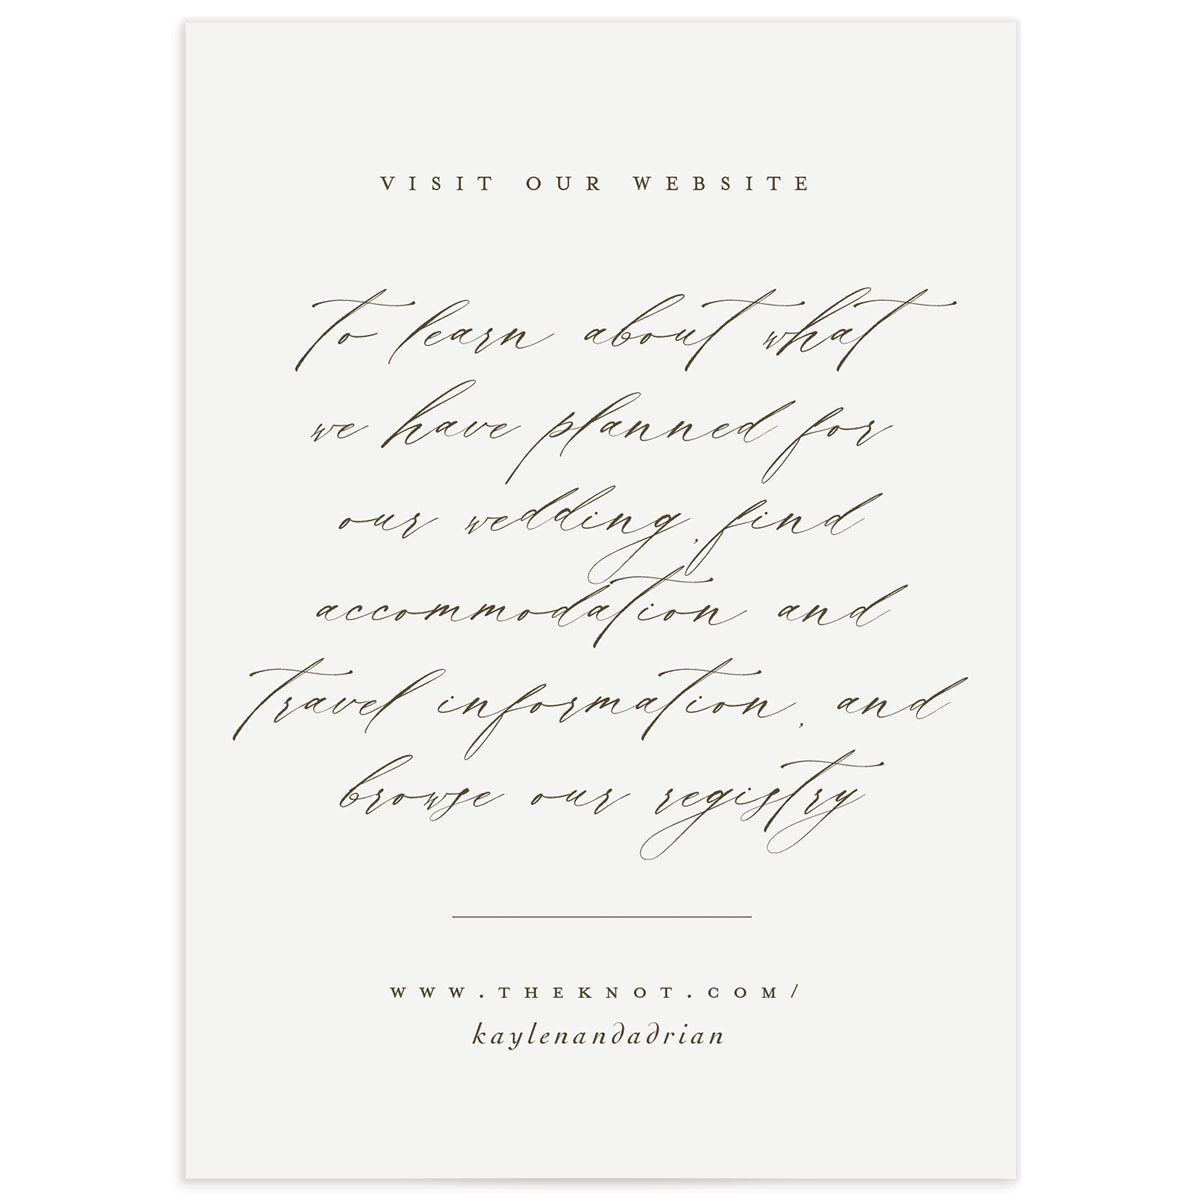 VISIT OUR WEBSITE
to learn about what
we have planned for
our wedding, find
accommodation and
travel information, and
browse our registry
WWW.THEKNOT.COM/
kaylenandadrian